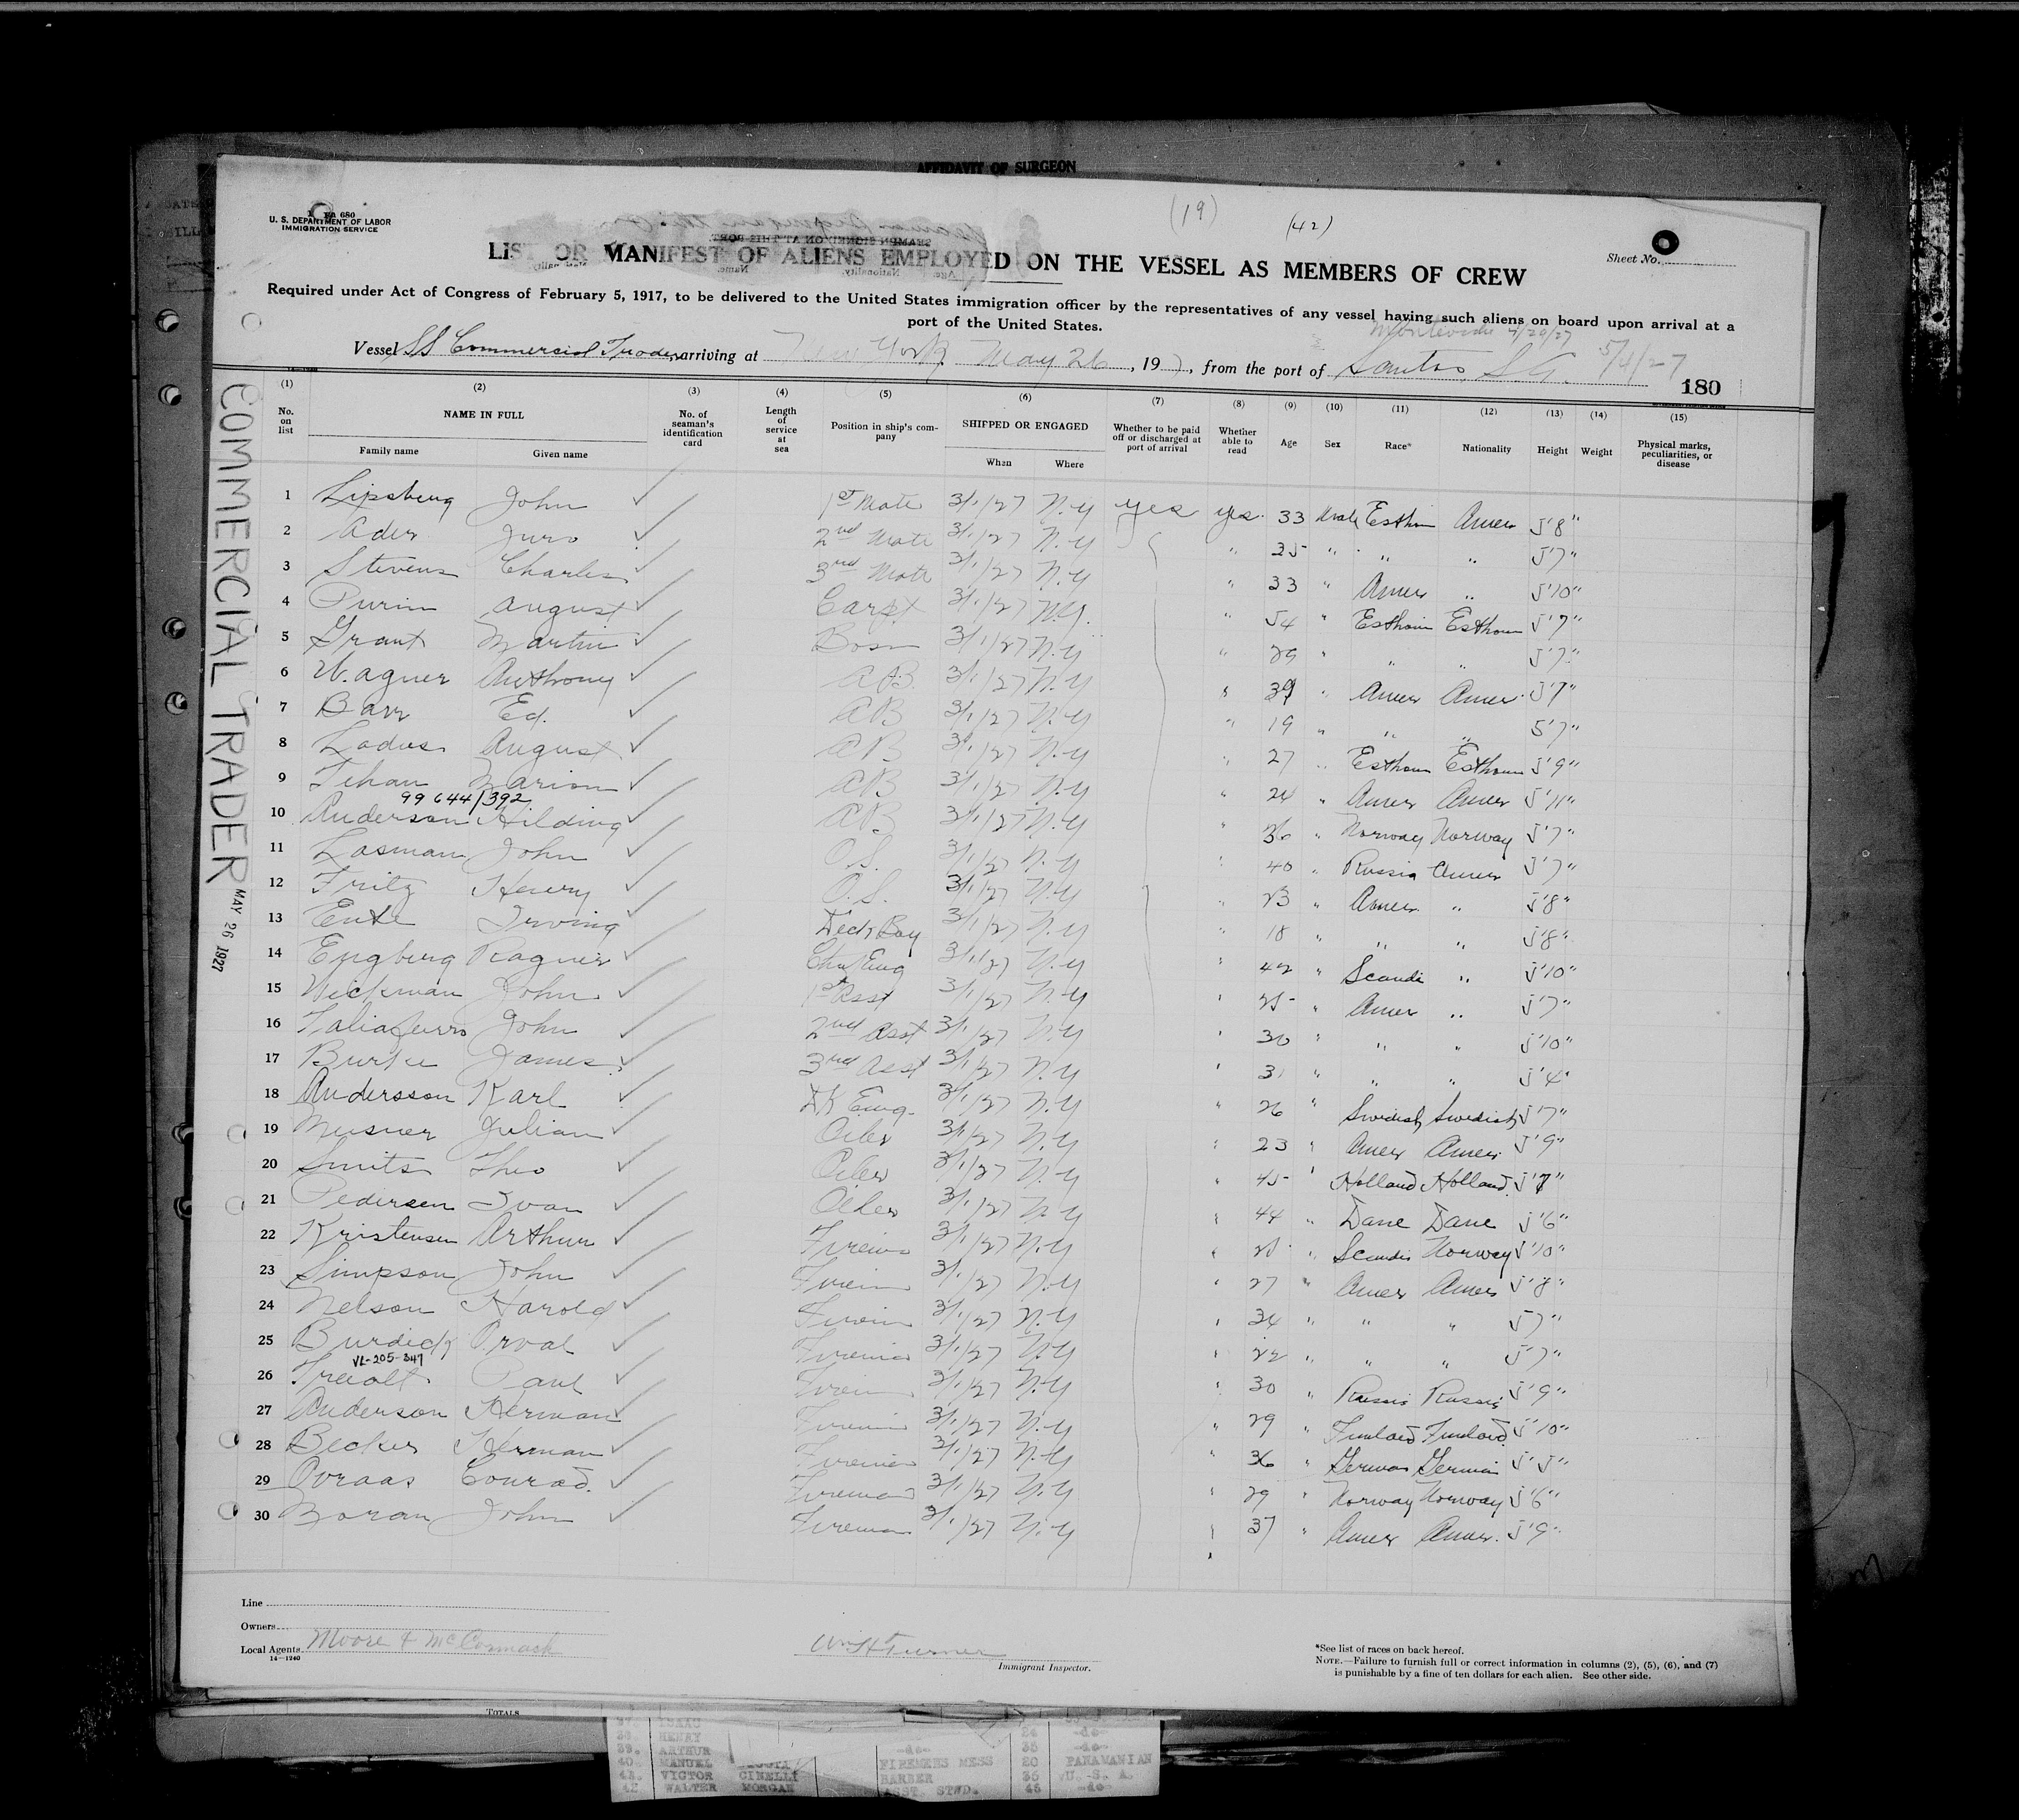 AFFIDAVIT OF SURGEON
680
U. S. DEPARTMENT OF LABOR
IMMIGRATION SERVICE
(19) (42)
LIST OR MANIFEST OF ALIENS EMPLOYED ON THE VESSEL AS MEMBERS OF CREW
Sheet No.
Required under Act of Congress of February 5, 1917, to be delivered to the United States immigration officer by the representatives of any vessel having such aliens on board upon arrival at a
port of the United States.
Montevideo 4/20/27
Vessel SS Commercial Trader, arriving at New York May 26, 197, from the port of Santos, S.A. 5/4/27
180
COMMERCIAL TRADER MAY 26 1927
(1) (2) (3) (4) (5) (6) (7) (8) (9) (10) (11) (12) (13) (14) (15)
No. on list NAME IN FULL Family name Given name No. of seaman's identification card Length of service at sea Position in ship's company SHIPPED OR ENGAGED When Where Whether to be paid off or discharged at port of arrival Whether able to read Age Sex Race* Nationality Height Weight Physical marks, peculiarities, or disease
1 Lipsberg John ✓ 1st Mate 3/1/27 N.Y yes yes 33 Male Esthon Amer 5'8"
2 Ader Juro ✓ 2nd Mate 3/1/27 N.Y " 25 " " " 5'7"
3 Stevens Charles ✓ 3rd Mate 3/1/27 N.Y " 33 " Amer " 5'10"
4 Purin August ✓ Carpt 3/1/27 N.Y. " 54 " Esthoin Esthoin 5'7"
5 Grant Martin ✓ Bosn 3/1/27 N.Y " 29 " " " 5'7"
6 Wagner Anthony ✓ A.B. 3/1/27 N.Y " 39 " Amer Amer 5'7"
7 Barr Ed. ✓ AB 3/1/27 N.Y " 19 " " " 5'7"
8 Ladus August ✓ AB 3/1/27 N.Y " 27 " Esthon Esthon 5'9"
9 Tehan Marion ✓ AB 3/1/27 N.Y " 24 " Amer Amer 5'11"
99644/392
10 Anderson Hilding AB 3/1/27 N.Y " 36 " Norway Norway 5'7"
11 Lasman John ✓ O.S. 3/1/27 N.Y " 40 " Russia Amer 5'7"
12 Fritz Henry ✓ O.S. 3/1/27 N.Y " 23 " Amer " 5'8"
13 Ente Irving Deck Boy 3/1/27 N.Y " 18 " " " 5'8"
14 Engberg Ragner ✓ Chief Eng 3/1/27 N.Y " 42 " Scandi " 5'10"
15 Wickman John ✓ 1st Asst 3/1/27 N.Y " 25 " Amer " 5'7"
16 Taliaferro John ✓ 2nd Asst 3/1/27 N.Y " 30 " " " 5'10"
17 Burke James ✓ 3rd Asst 3/1/27 N.Y " 31 " " " 5'4"
18 Andersson Karl ✓ DK Eng. 3/1/27 N.Y " 26 " Swedish Swedish 5'7"
19 Meisner Julian ✓ Oiler 3/1/27 N.Y " 23 " Amer Amer 5'9"
20 Smits Theo ✓ Oiler 3/1/27 N.Y " 45 " Holland Holland 5'7"
21 Pedersen Ivan ✓ Oiler 3/1/27 N.Y " 44 " Dane Dane 5'6"
22 Kristensen Arthur ✓ Firemn 3/1/27 N.Y " 25 " Scandi Norway 5'10"
23 Simpson John ✓ Firem 3/1/27 N.Y " 27 " Amer Amer 5'8"
24 Nelson Harold ✓ Firem 3/1/27 N.Y " 34 " " " 5'7"
25 Burdick Orval ✓ Fireman 3/1/27 N.Y " 22 " " " 5'7"
VL-205-347
26 Paul ✓ Firem 3/1/27 N.Y " 30 " Russis Russis 5'9"
27 Anderson Herman ✓ Firemn 3/1/27 N.Y " 29 " Finland Finland 5'10"
28 Becker Herman ✓ Fireman 3/1/27 N.Y " 36 " German German 5'5"
29 Ovraas Conrad. ✓ Fireman 3/1/27 N.Y " 29 " Norway Norway 5'6"
30 Boran John ✓ Fireman 3/1/27 N.Y " 37 " Amer Amer. 5'9"
Line
Owners
Local Agents Moore & McCormack
14—1240
Wm H Turner
Immigrant Inspector.
*See list of races on back hereof.
NOTE.—Failure to furnish full or correct information in columns (2), (5), (6), and (7)
is punishable by a fine of ten dollars for each alien. See other side.
TOTALS
37. ISAAC 24 -do-
38. HENRY
39. ARTHUR -do- 35 -do-
40. MANUEL FIREMENS MESS 20 PANAMANIAN
41. VICTOR CINELLI BARBER 35 U. S. A.
42 WALTER MORGAN ASST. STWD. 45 -do-